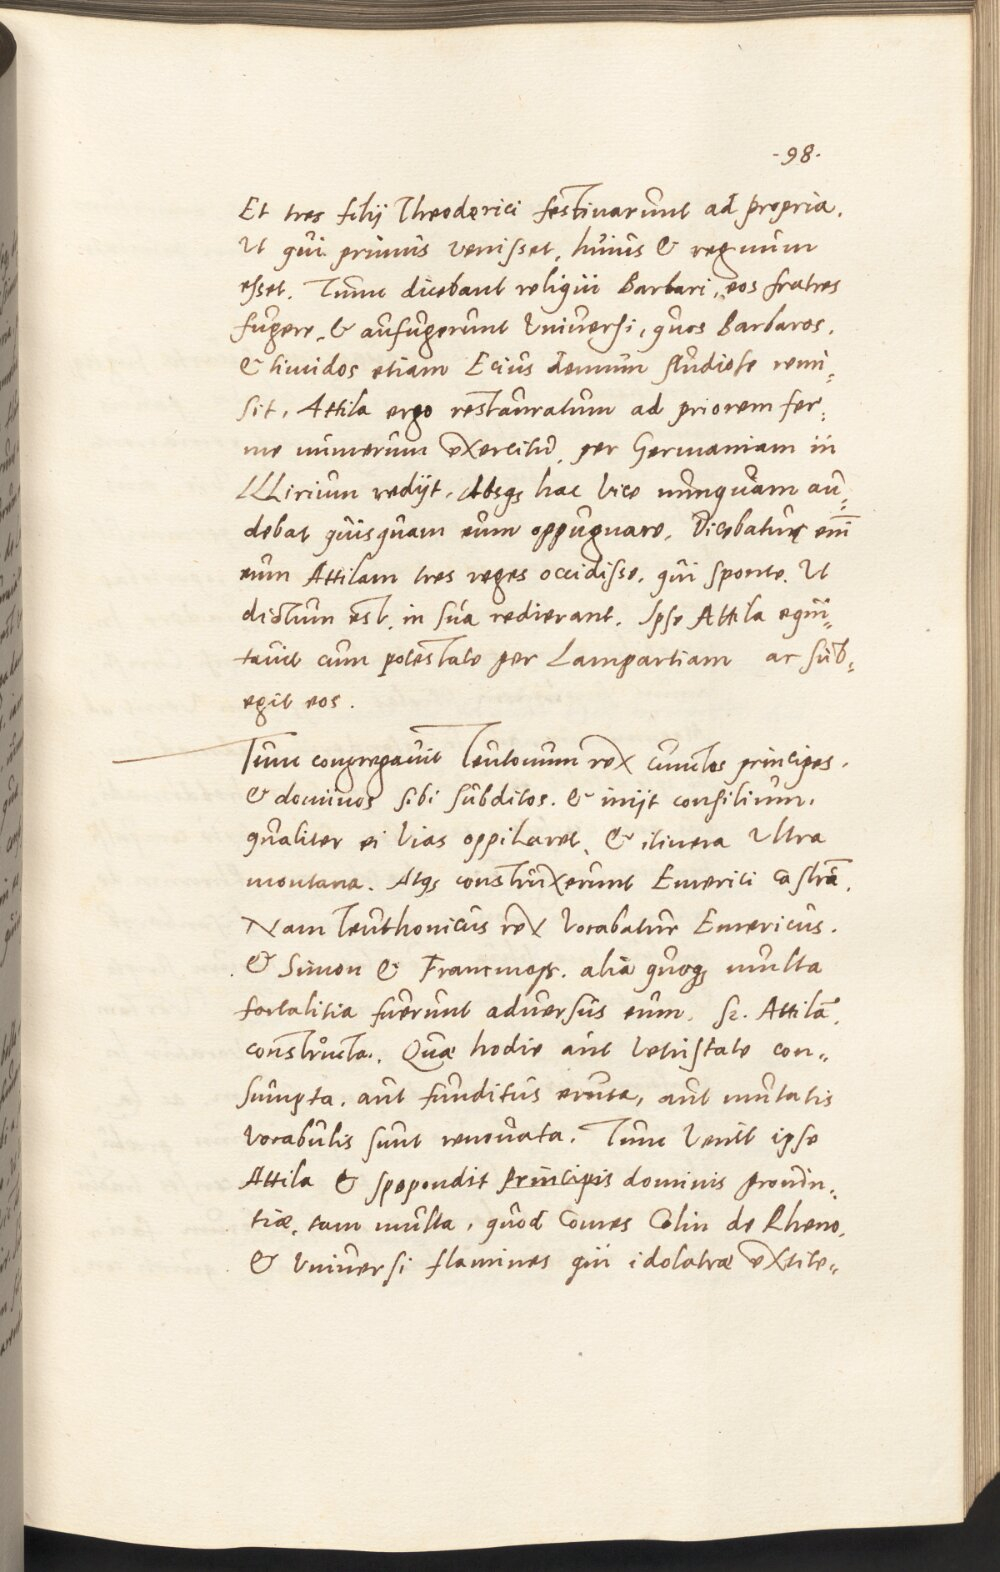 -98-
Et tres filij Theoderici festinarunt ad propria.
Ut qui primus venisset, huius & regnum
esset. Tunc dicebant reliqui Barbari, eos fratres
fugere, & aufugerunt Universi, quos Barbaros,
& timidos etiam Ecius demum studiose remi„
sit, Attila ergo restauratum ad priorem fer„
me numerum exercitũ, per Germaniam in
Illirium redijt, Absq; hac vice nunquam au„
debat quisquam eum oppugnare. Dicebatur em̄
eum Attilam tres reges occidisse, qui sponte, Ut
dictum est, in sua redierant. Ipse Attila equi„
tavit cum potestate per Lampartiam ac sub„
egit eos.
Tunc congregavit Teutonum rex cunctos principes,
& dominos sibi subditos, & inijt consilium,
qualiter ei vias oppilaret, & itinera Ultra
montana. Atq; construxerunt Emerici castrā,
Nam Teuthonicus rex vocabatur Emericus.
& Simon & alia quoq; multa
fortalitia fuerunt adversus eum, sz. Attilā,
constructa. Quæ hodie aut vetustate con„
sumpta, aut funditus eruta, aut mutatis
vocabulis sunt renovata. Tunc venit ipse
Attila & spopondit principis dominis provin„
tiæ, tam multa, quod Comes Colin de Rheno,
& Universi flamines qui idolatræ extite„